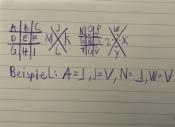 A B C J N O P W
D E F M K Q R S Z X
G H I L T U V Y
Beispiel: A = _|, J = V, N = _|, W = V